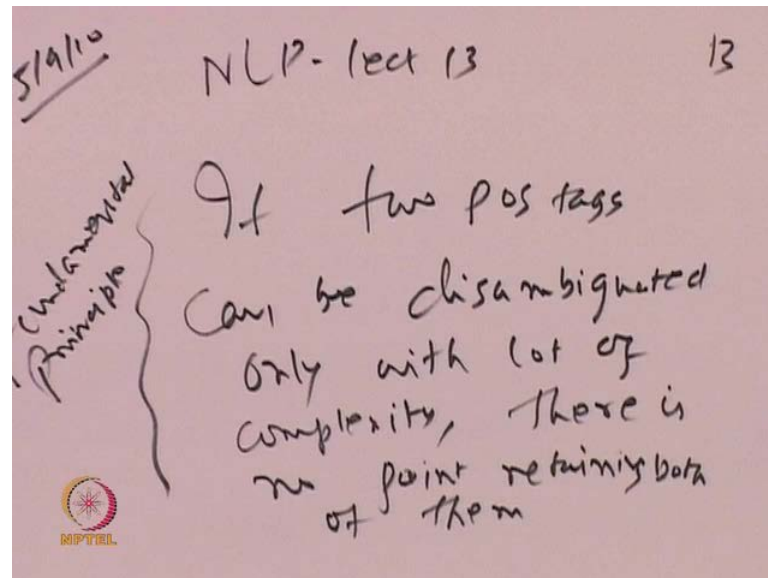 5/9/10
NLP- lect 13
13
Fundamental
Principle
If two pos tags
Can be disambiguated
only with lot of
complexity, there is
no point retaining both
of them
NPTEL